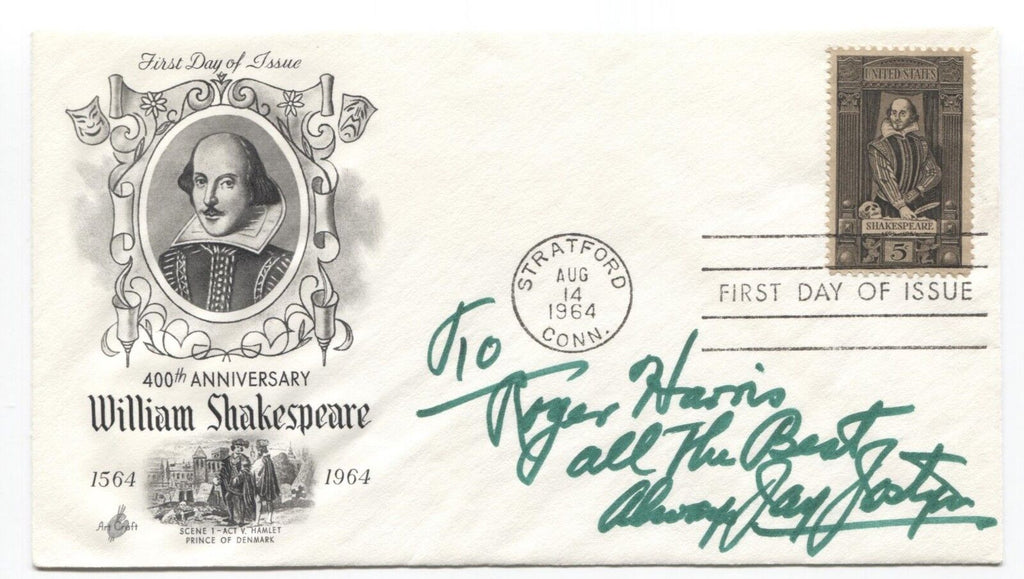 First Day of Issue
400th ANNIVERSARY
William Shakespeare
1564 1964
Art Craft
SCENE 1-ACT V. HAMLET
PRINCE OF DENMARK
UNITED STATES
SHAKESPEARE
5¢
STRATFORD
AUG
14
1964
CONN.
FIRST DAY OF ISSUE
To
Roger Harris
all The Best
Always Jay Jostyn